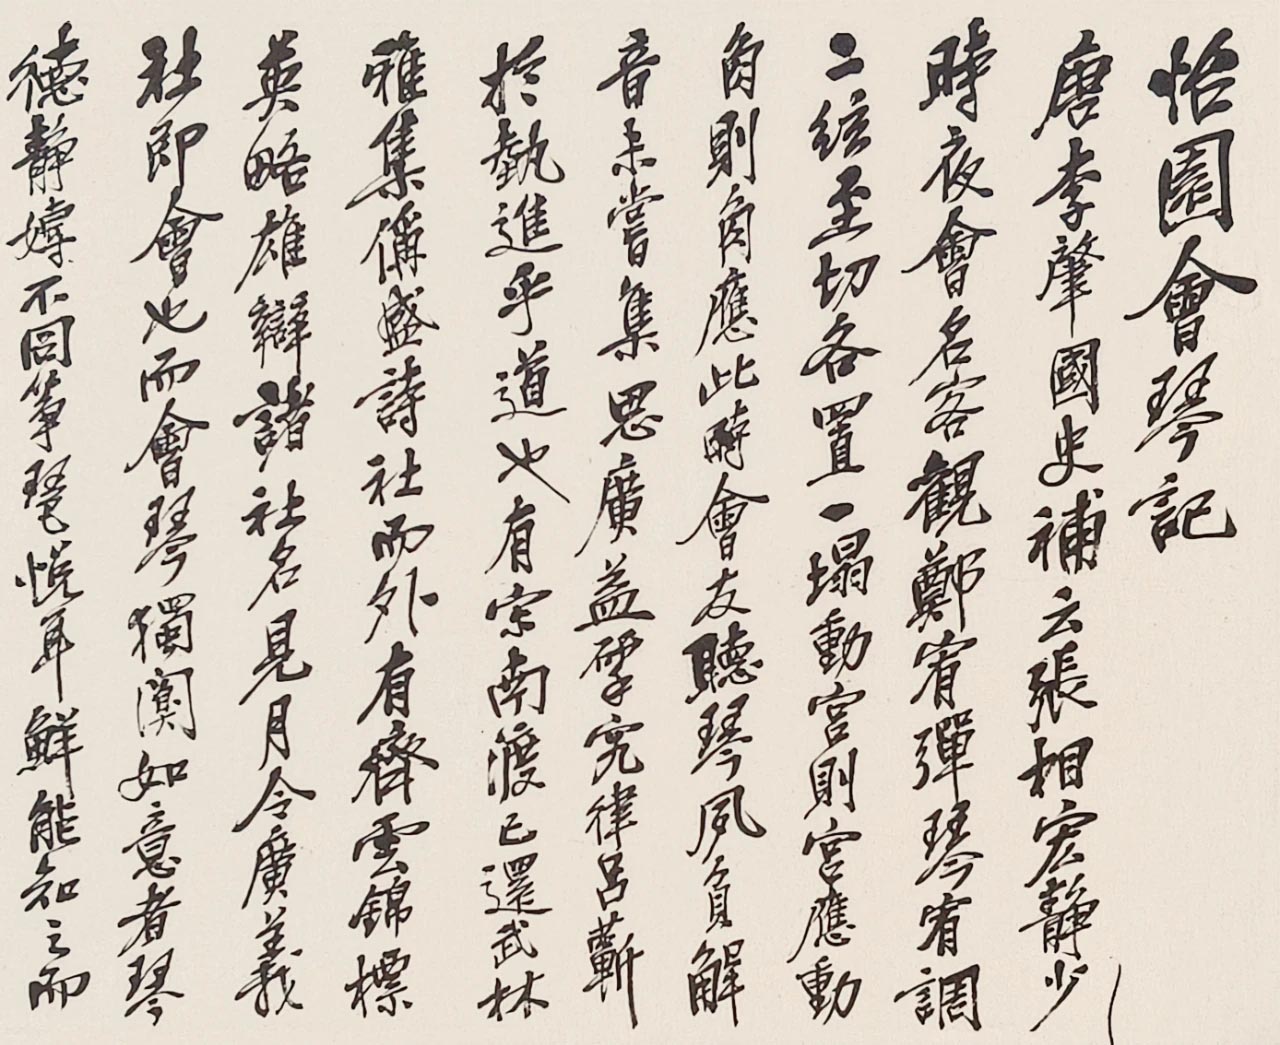 怡園會琴記
唐李肇國史補云張相宏靜少
時夜會名客觀鄭宥彈琴宥調
二絃至切各置一榻動宮則宮應動
角則角應此時會友聽琴夙負解
音未嘗集思廣益揅究律呂蘄
於埶進乎道也有宋南渡已還武林
雅集偁盛詩社而外有齊雲錦標
英略雄辯諸社名見月令廣義
社即會也而會琴獨闃如意者琴
德靜嫥不同箏琶悅耳鮮能知之而